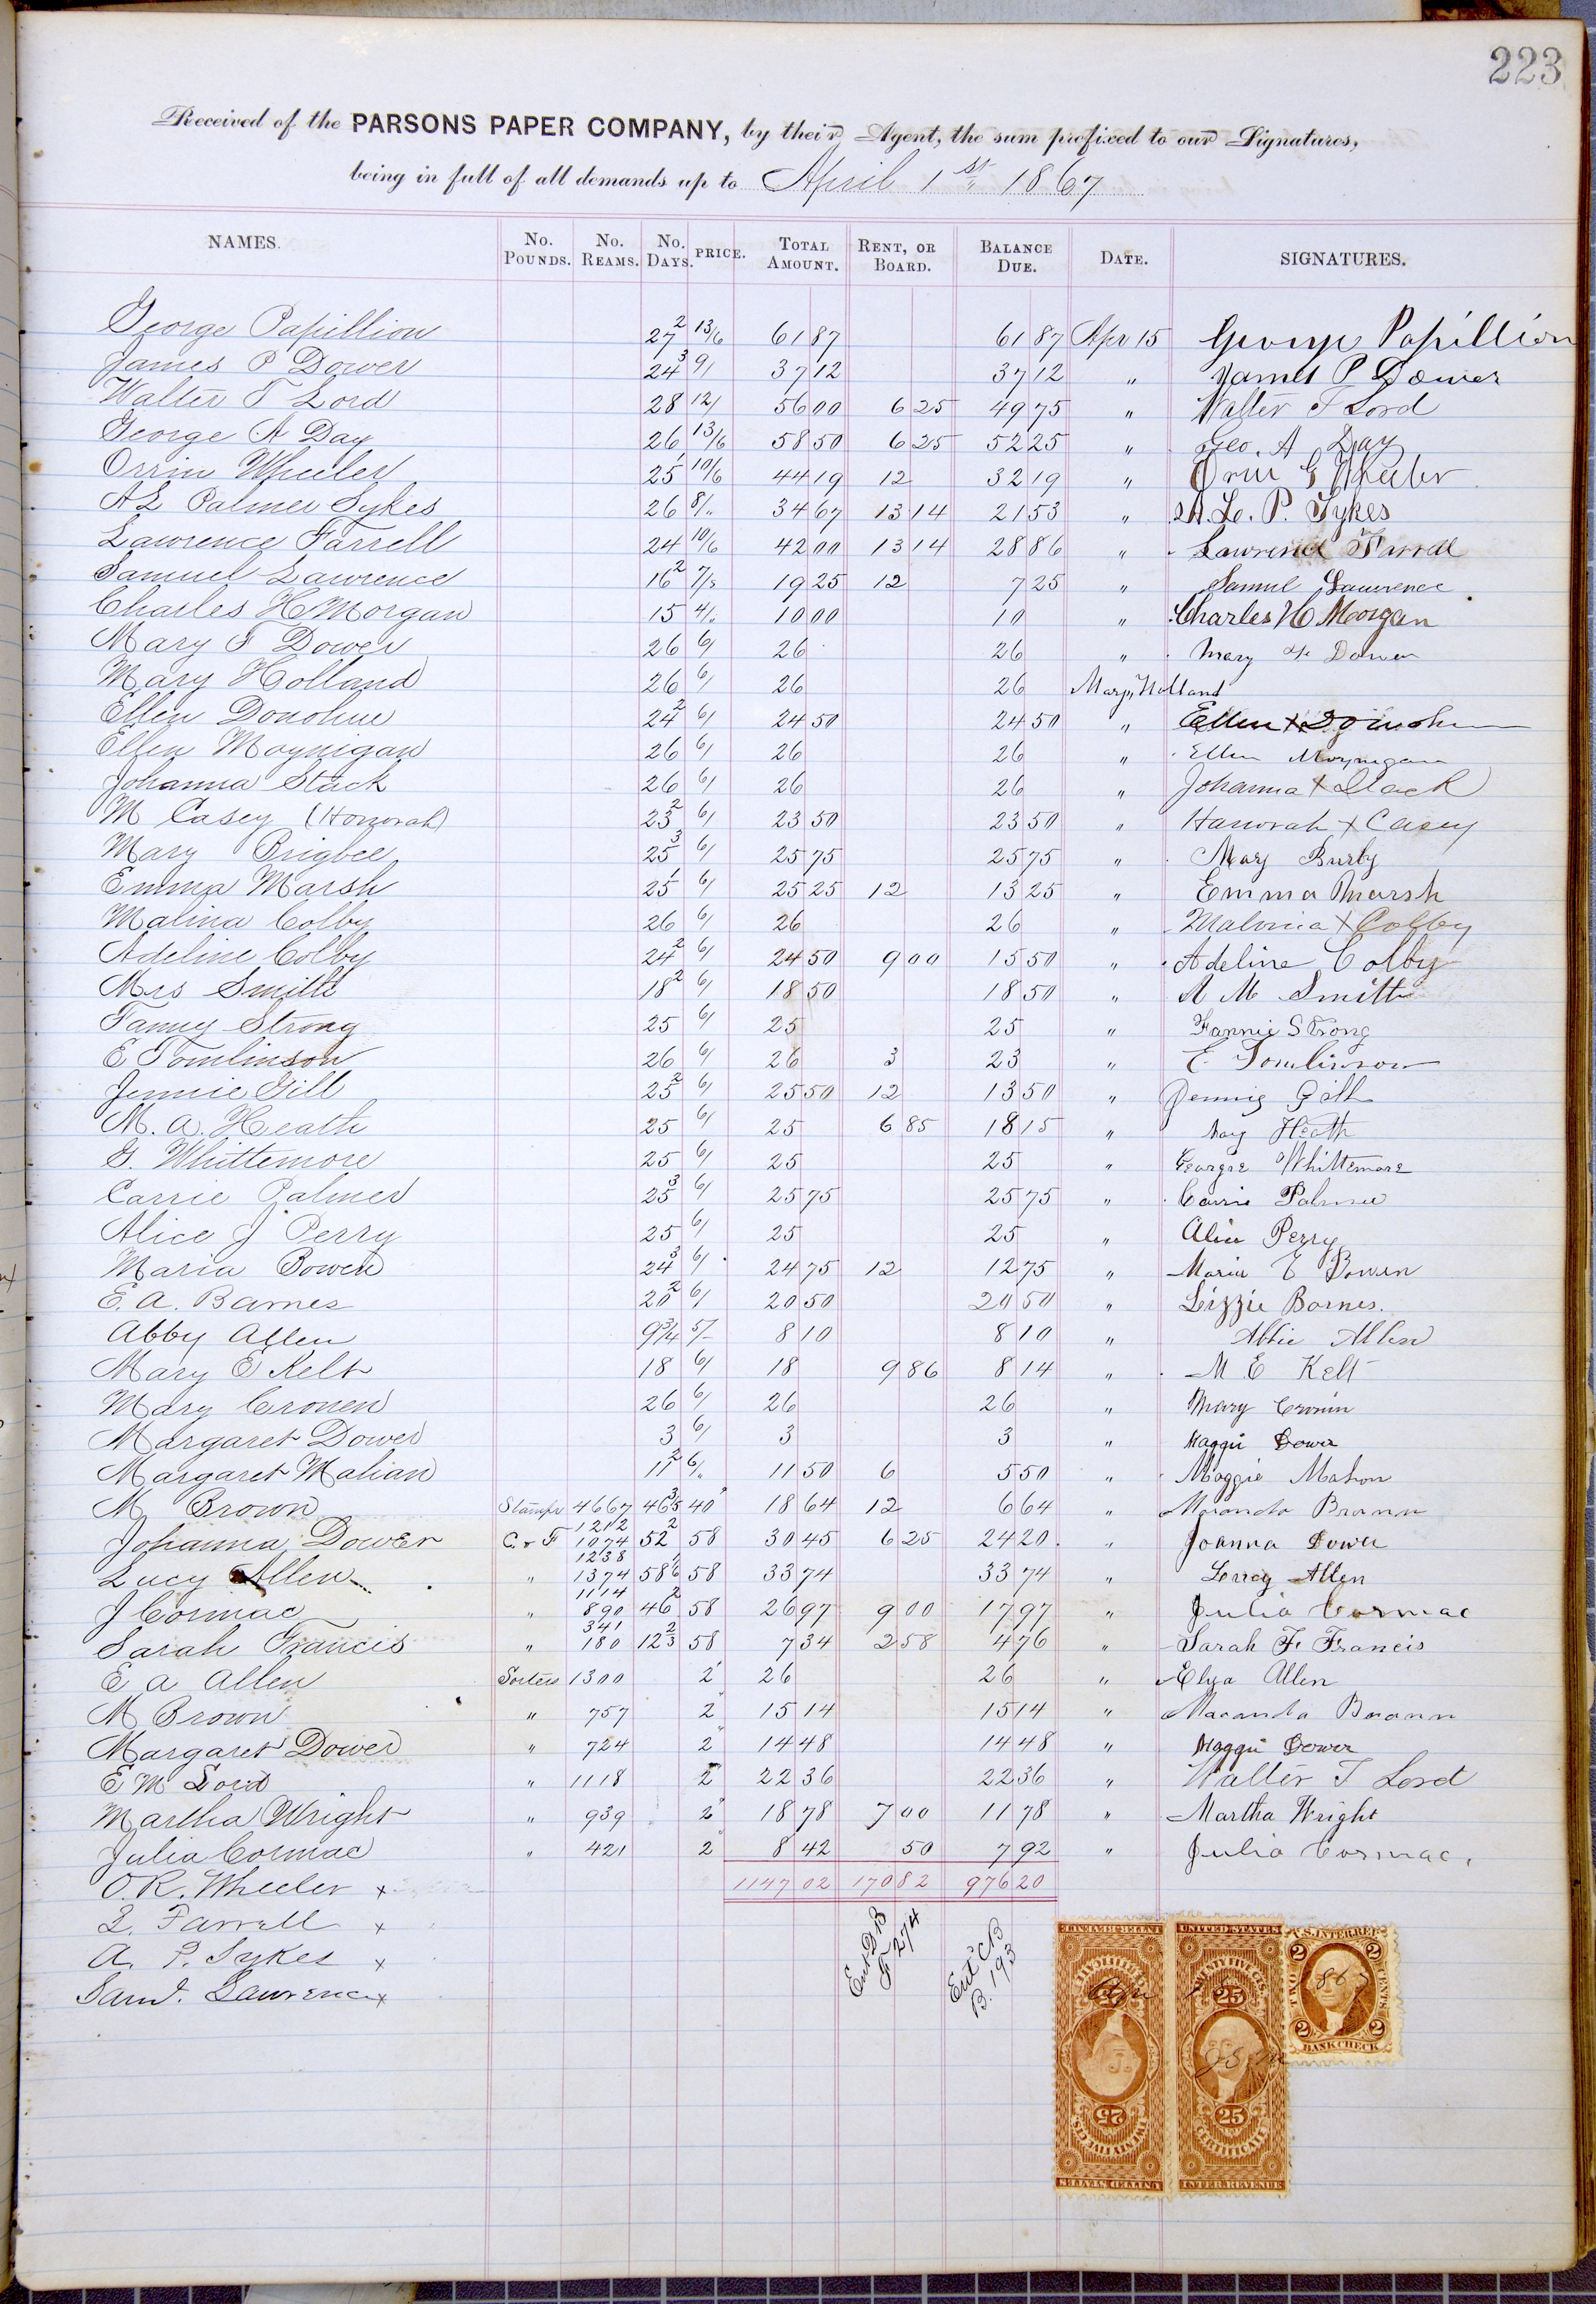 223
Received of the PARSONS PAPER COMPANY, by their Agent, the sum prefixed to our Signatures,
being in full of all demands up to April 1st 1867
NAMES. No. Pounds. No. Reams. No. Days. PRICE. Total Amount. Rent, or Board. Balance Due. Date. SIGNATURES.
George Papillion 27 2 13/6 61 87 61 87 Apr 15 George Papillion
James P Dower 24 3 9/ 37 12 37 12 " James P Dower
Walter T Lord 28 12/ 56 00 6 25 49 75 " Walter T Lord
George A Day 26 13/6 58 50 6 25 52 25 " Geo. A Day
Orrin Wheeler 25 1 10/6 44 19 12 32 19 " Orrin G Wheeler
A L Palmer Sykes 26 8/ 34 67 13 14 21 53 " A. L. P. Sykes
Lawrence Farrell 24 10/6 42 00 13 14 28 86 " Lawrence Farrell
Samuel Lawrence 16 2 7/ 19 25 12 7 25 " Samuel Lawrence
Charles H Morgan 15 4/ 10 00 10 " Charles H Morgan
Mary F Dower 26 6/ 26 26 " Mary F Dower
Mary Holland 26 6/ 26 26 " Mary Holland
Ellen Donohue 24 2 6/ 24 50 24 50 " Ellen X
Ellen Moynigan 26 6/ 26 26 " Ellen Moynigan
Johanna Stack 26 6/ 26 26 " Johanna X Stack
M Casey (Honorah) 23 2 6/ 23 50 23 50 " Hanorah X Casey
Mary Brigbee 25 3 6/ 25 75 25 75 " Mary Burby
Emma Marsh 25 1 6/ 25 25 12 13 25 " Emma Marsh
Malina Colby 26 6/ 26 26 " Malvina X Colby
Adeline Colby 24 2 6/ 24 50 9 00 15 50 " Adeline Colby
Mrs Smith 18 2 6/ 18 50 18 50 " A M Smith
Fanny Strong 25 6/ 25 25 " Fannie Strong
E Tomlinson 26 6/ 26 3 23 " E. Tomlinson
Jennie Gill 25 2 6/ 25 50 12 13 50 " Jennie Gill
M. A. Heath 25 6/ 25 6 85 18 15 " May Heath
G. Whittemore 25 6/ 25 25 " Georgie Whittemore
Carrie Palmer 25 3 6/ 25 75 25 75 " Carrie Palmer
Alice J Perry 25 6/ 25 25 " Alice Perry
Maria Bowen 24 3 6/ 24 75 12 12 75 " Maria E Bowen
E. A. Barnes 20 2 6/ 20 50 20 50 " Lizzie Barnes.
Abby Allen 9 3/4 5/ 8 10 8 10 " Abbie Allen
Mary E Kelt 18 6/ 18 9 86 8 14 " M E Kelt
Mary Cronen 26 6/ 26 26 " Mary Cronin
Margaret Dower 3 6/ 3 3 " Maggie Dower
Margaret Mahan 11 2 6/ 11 50 6 5 50 " Maggie Mahon
M Brown Stamps 4667 46 3/5 40 18 64 12 6 64 " Maranda Brown
Johanna Dower C & F 1212 1074 52 2 58 30 45 6 25 24 20 " Joanna Dower
Lucy Allen " 1238 1374 58 58 33 74 33 74 " Lucy Allen
J Cormac " 1114 890 46 2 58 26 97 9 00 17 97 " Julia Cormac
Sarah Francis " 341 180 12 2/3 58 7 34 2 58 4 76 " Sarah F. Francis
E A Allen Sorters 1300 2 26 26 " Eliza Allen
M Brown " 757 2 15 14 15 14 " Maranda Brown
Margaret Dower " 724 2 14 48 14 48 " Maggie Dower
E M Lord " 1118 2 22 36 22 36 " Walter T Lord
Martha Wright " 939 2 18 78 7 00 11 78 " Martha Wright
Julia Cormac " 421 2 8 42 50 7 92 " Julia Cormac.
O. R. Wheeler x 1147 02 170 82 976 20
L. Farrell x
A. P. Sykes x
Saml. Lawrence x
Ent DB
F 274
Ent CB
B. 193
UNITED STATES
TWENTY FIVE CTS.
25
25
CERTIFICATE
INTER. REVENUE
UNITED STATES
TWENTY FIVE CTS.
25
25
CERTIFICATE
INTER. REVENUE
U.S. INTER. REV.
TWO CENTS
2 2
2 2
BANK CHECK
Apr 15 1867